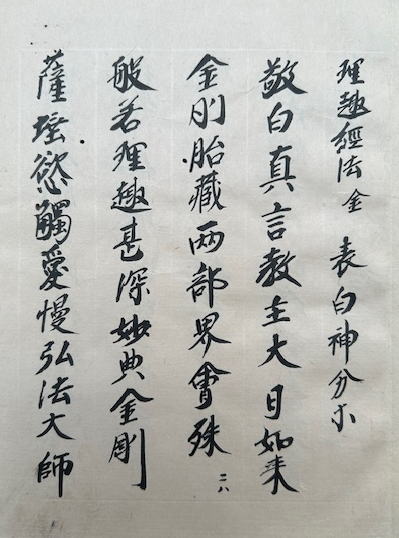 理趣經法 金 表白神分等
敬白真言教主大日如来
金剛胎藏両部界會殊 二八
般若理趣甚深妙典金剛
薩埵慾觸愛慢弘法大師